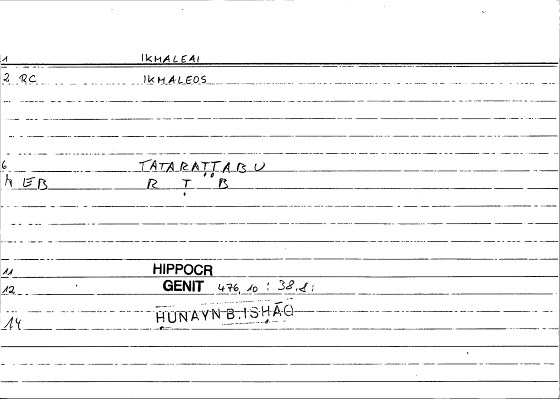 1 IKMALEAI
2 RC IKMALEOS
6 TATARAṬṬABU
4 EB R Ṭ B
11 HIPPOCR
12 GENIT 476,10 : 38,8:
14 ḤUNAYN B. ISḤĀQ